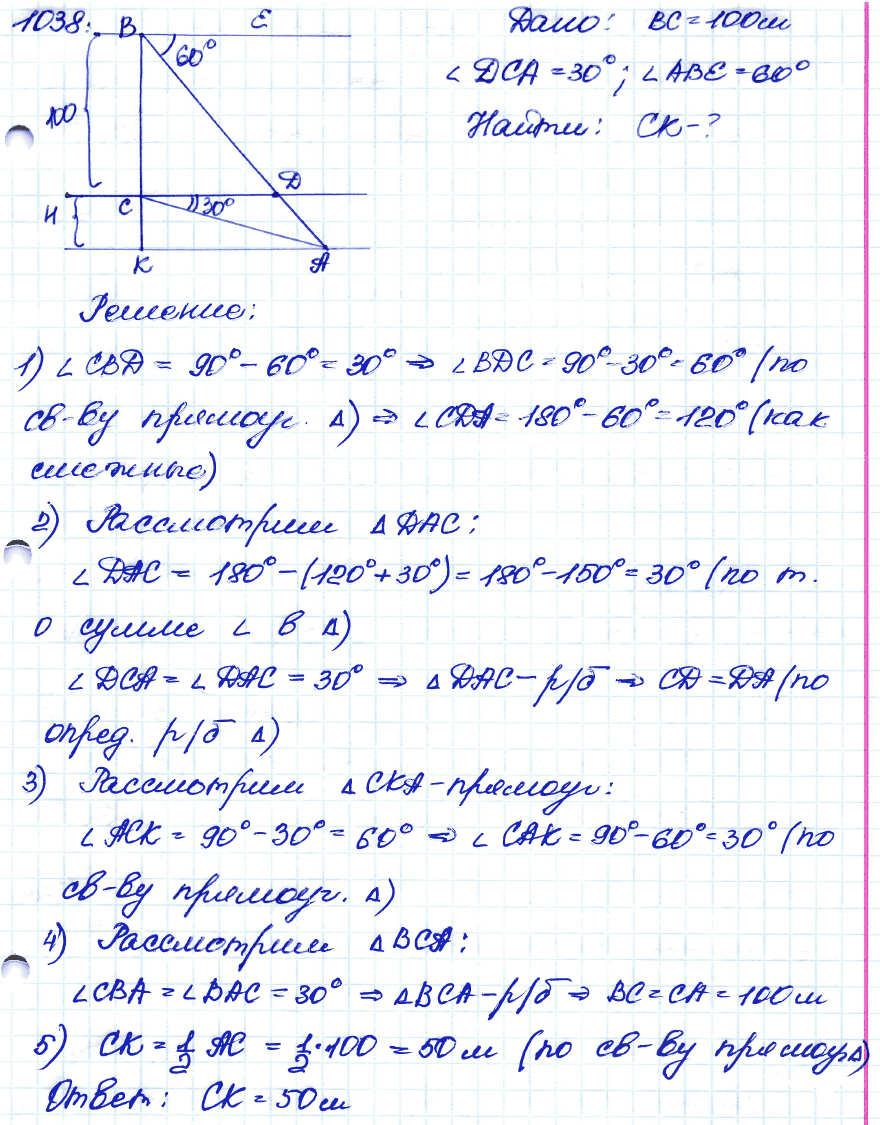 1038. B E Дано: BC = 100м
60° ∠DCA = 30°; ∠ABE = 60°
100 Найти: CK - ?
D
H C 30°
K A
Решение:
1) ∠CBD = 90° - 60° = 30° ⇒ ∠BDC = 90° - 30° = 60° (по
св-ву прямоуг. Δ) ⇒ ∠CDA = 180° - 60° = 120° (как
смежные)
2) Рассмотрим ΔDAC:
∠DAC = 180° - (120° + 30°) = 180° - 150° = 30° (по т.
о сумме ∠ в Δ)
∠DCA = ∠DAC = 30° ⇒ ΔDAC - р/б ⇒ CD = DA (по
опред. р/б Δ)
3) Рассмотрим ΔCKA - прямоуг:
∠ACK = 90° - 30° = 60° ⇒ ∠CAK = 90° - 60° = 30° (по
св-ву прямоуг. Δ)
4) Рассмотрим ΔBCA:
∠CBA = ∠BAC = 30° ⇒ ΔBCA - р/б ⇒ BC = CA = 100м
5) CK = 1/2 AC = 1/2 · 100 = 50м (по св-ву прямоуг Δ)
Ответ: CK = 50м